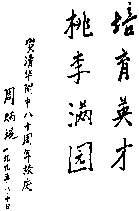 培育英才
桃李满园
贺清华附中八十周年校庆
周炳琨
一九九五.八.十日